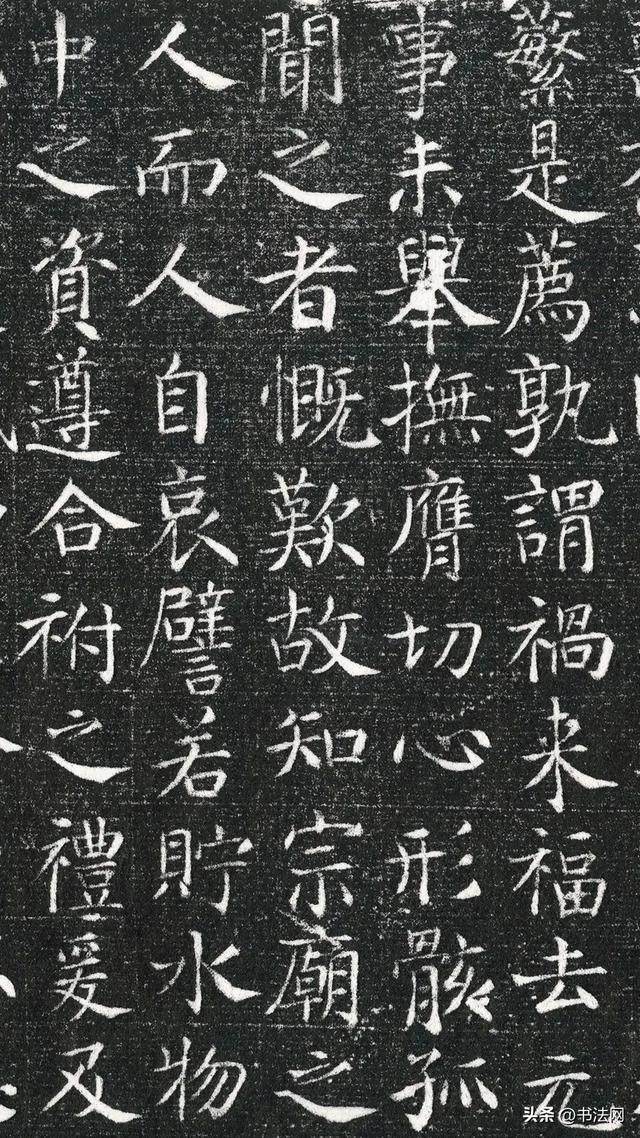 蘩是薦孰謂禍来福去元
事未舉撫膺切心形骸孤
聞之者慨歎故知宗廟之
人而人自哀譬若貯水物
中之資遵合祔之禮爰及
头条@书法网